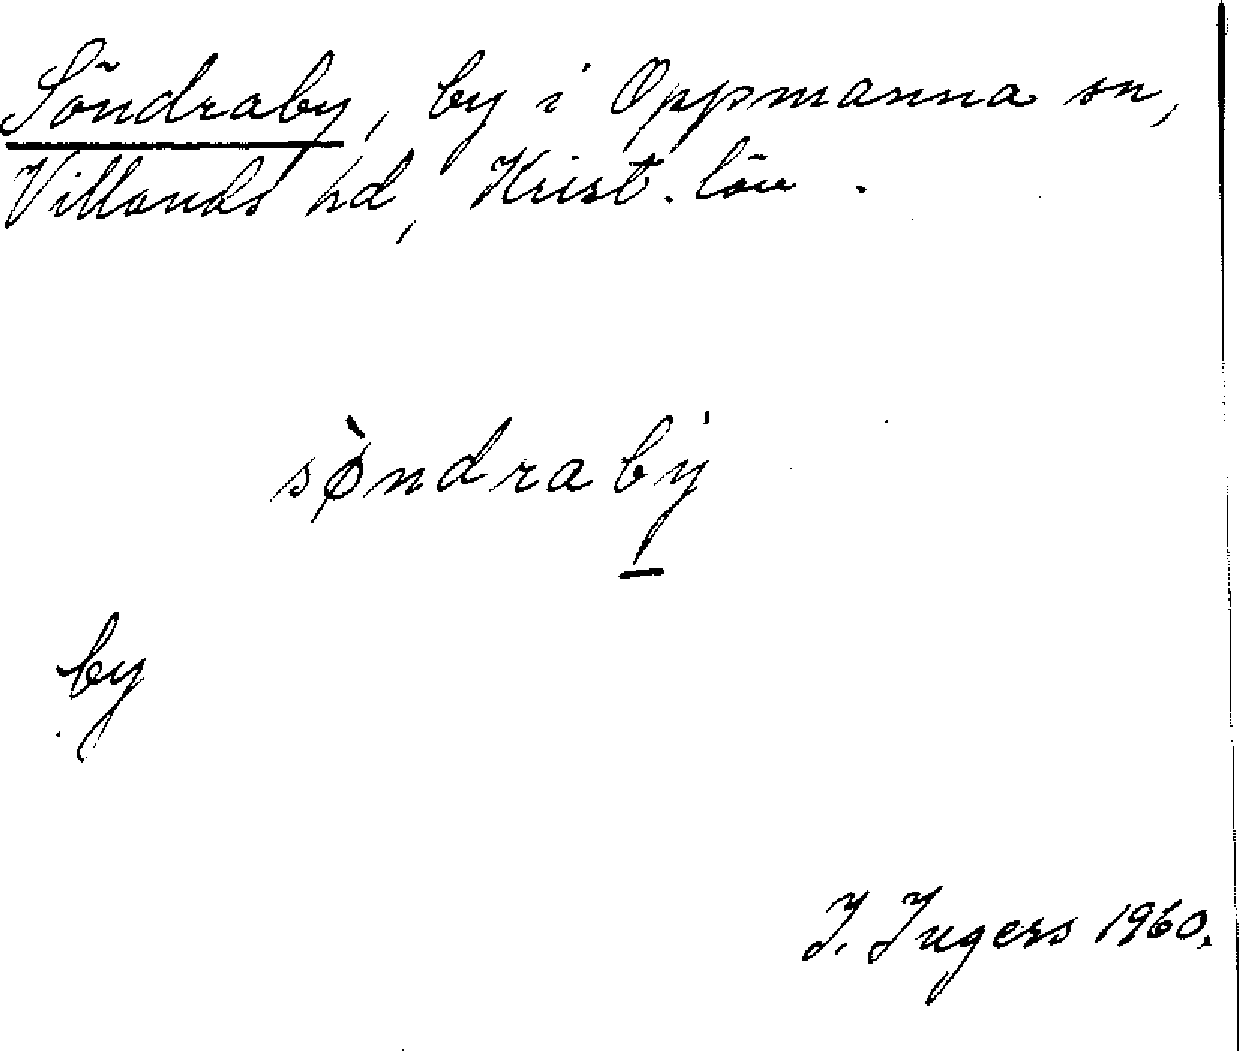 Söndraby, by i Oppmanna sn,
Villands hd, Krist. län.
sø̀ndrabý
by
I. Ingers 1960.